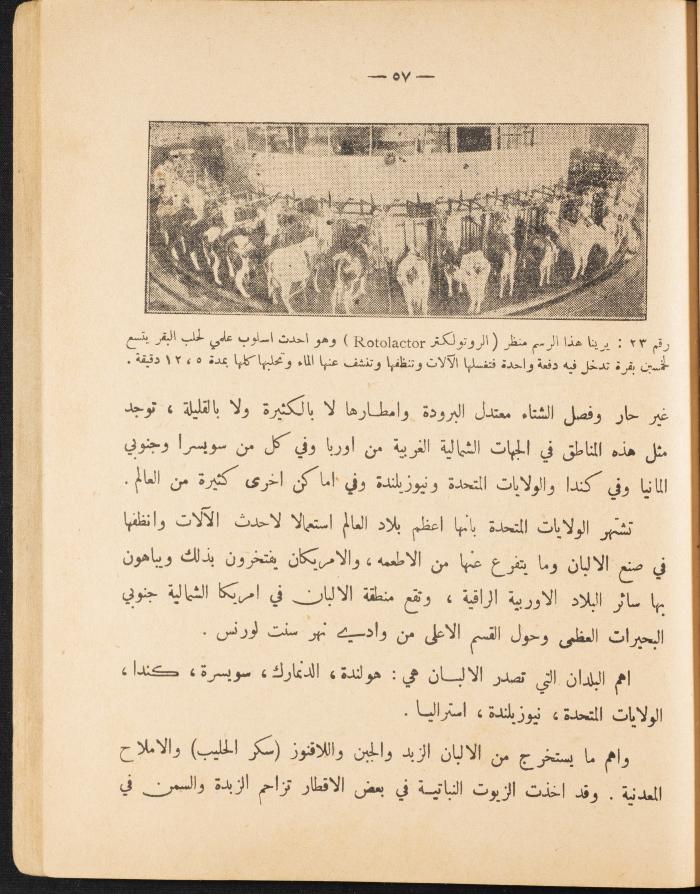 — ٥٧ —
رقم ٢٣ : يرينا هذا الرسم منظر (الروتولكتر Rotolactor ) وهو احدث اسلوب علمي لحلب البقر يتسع
لخمسين بقرة تدخل فيه دفعة واحدة فتغسلها الآلات وتنظفها وتنشف عنها الماء وتحلبها كلها بمدة ١٢،٥ دقيقة .
غير حار وفصل الشتاء معتدل البرودة وامطارها لا بالكثيرة ولا بالقليلة ، توجد
مثل هذه المناطق في الجهات الشمالية الغربية من اوربا وفي كل من سويسرا وجنوبي
المانيا وفي كندا والولايات المتحدة ونيوزيلندة وفي اماكن اخرى كثيرة من العالم .
تشتهر الولايات المتحدة بانها اعظم بلاد العالم استعمالا لاحدث الآلات وانظفها
في صنع الالبان وما يتفرع عنها من الاطعمه ، والامريكان يفتخرون بذلك ويباهون
بها سائر البلاد الاوربية الراقية ، وتقع منطقة الالبان في امريكا الشمالية جنوبي
البحيرات العظمى وحول القسم الاعلى من وادي نهر سنت لورنس .
اهم البلدان التي تصدر الالبان هي : هولندة ، الدنمارك ، سويسرة ، كندا ،
الولايات المتحدة ، نيوزيلندة ، استراليا .
واهم ما يستخرج من الالبان الزبد والجبن واللاقنوز (سكر الحليب) والاملاح
المعدنية . وقد اخذت الزيوت النباتية في بعض الاقطار تزاحم الزبدة والسمن في